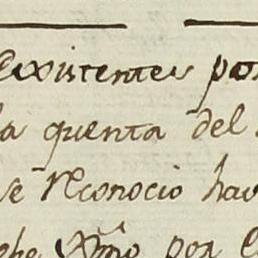 Existentes por
la quenta del
se reconocio hav
por